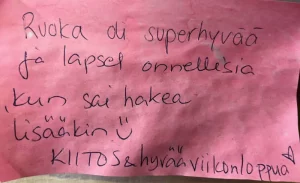 Ruoka oli superhyvää
ja lapset onnellisia
kun sai hakea
lisääkin
KIITOS & hyvää viikonloppua